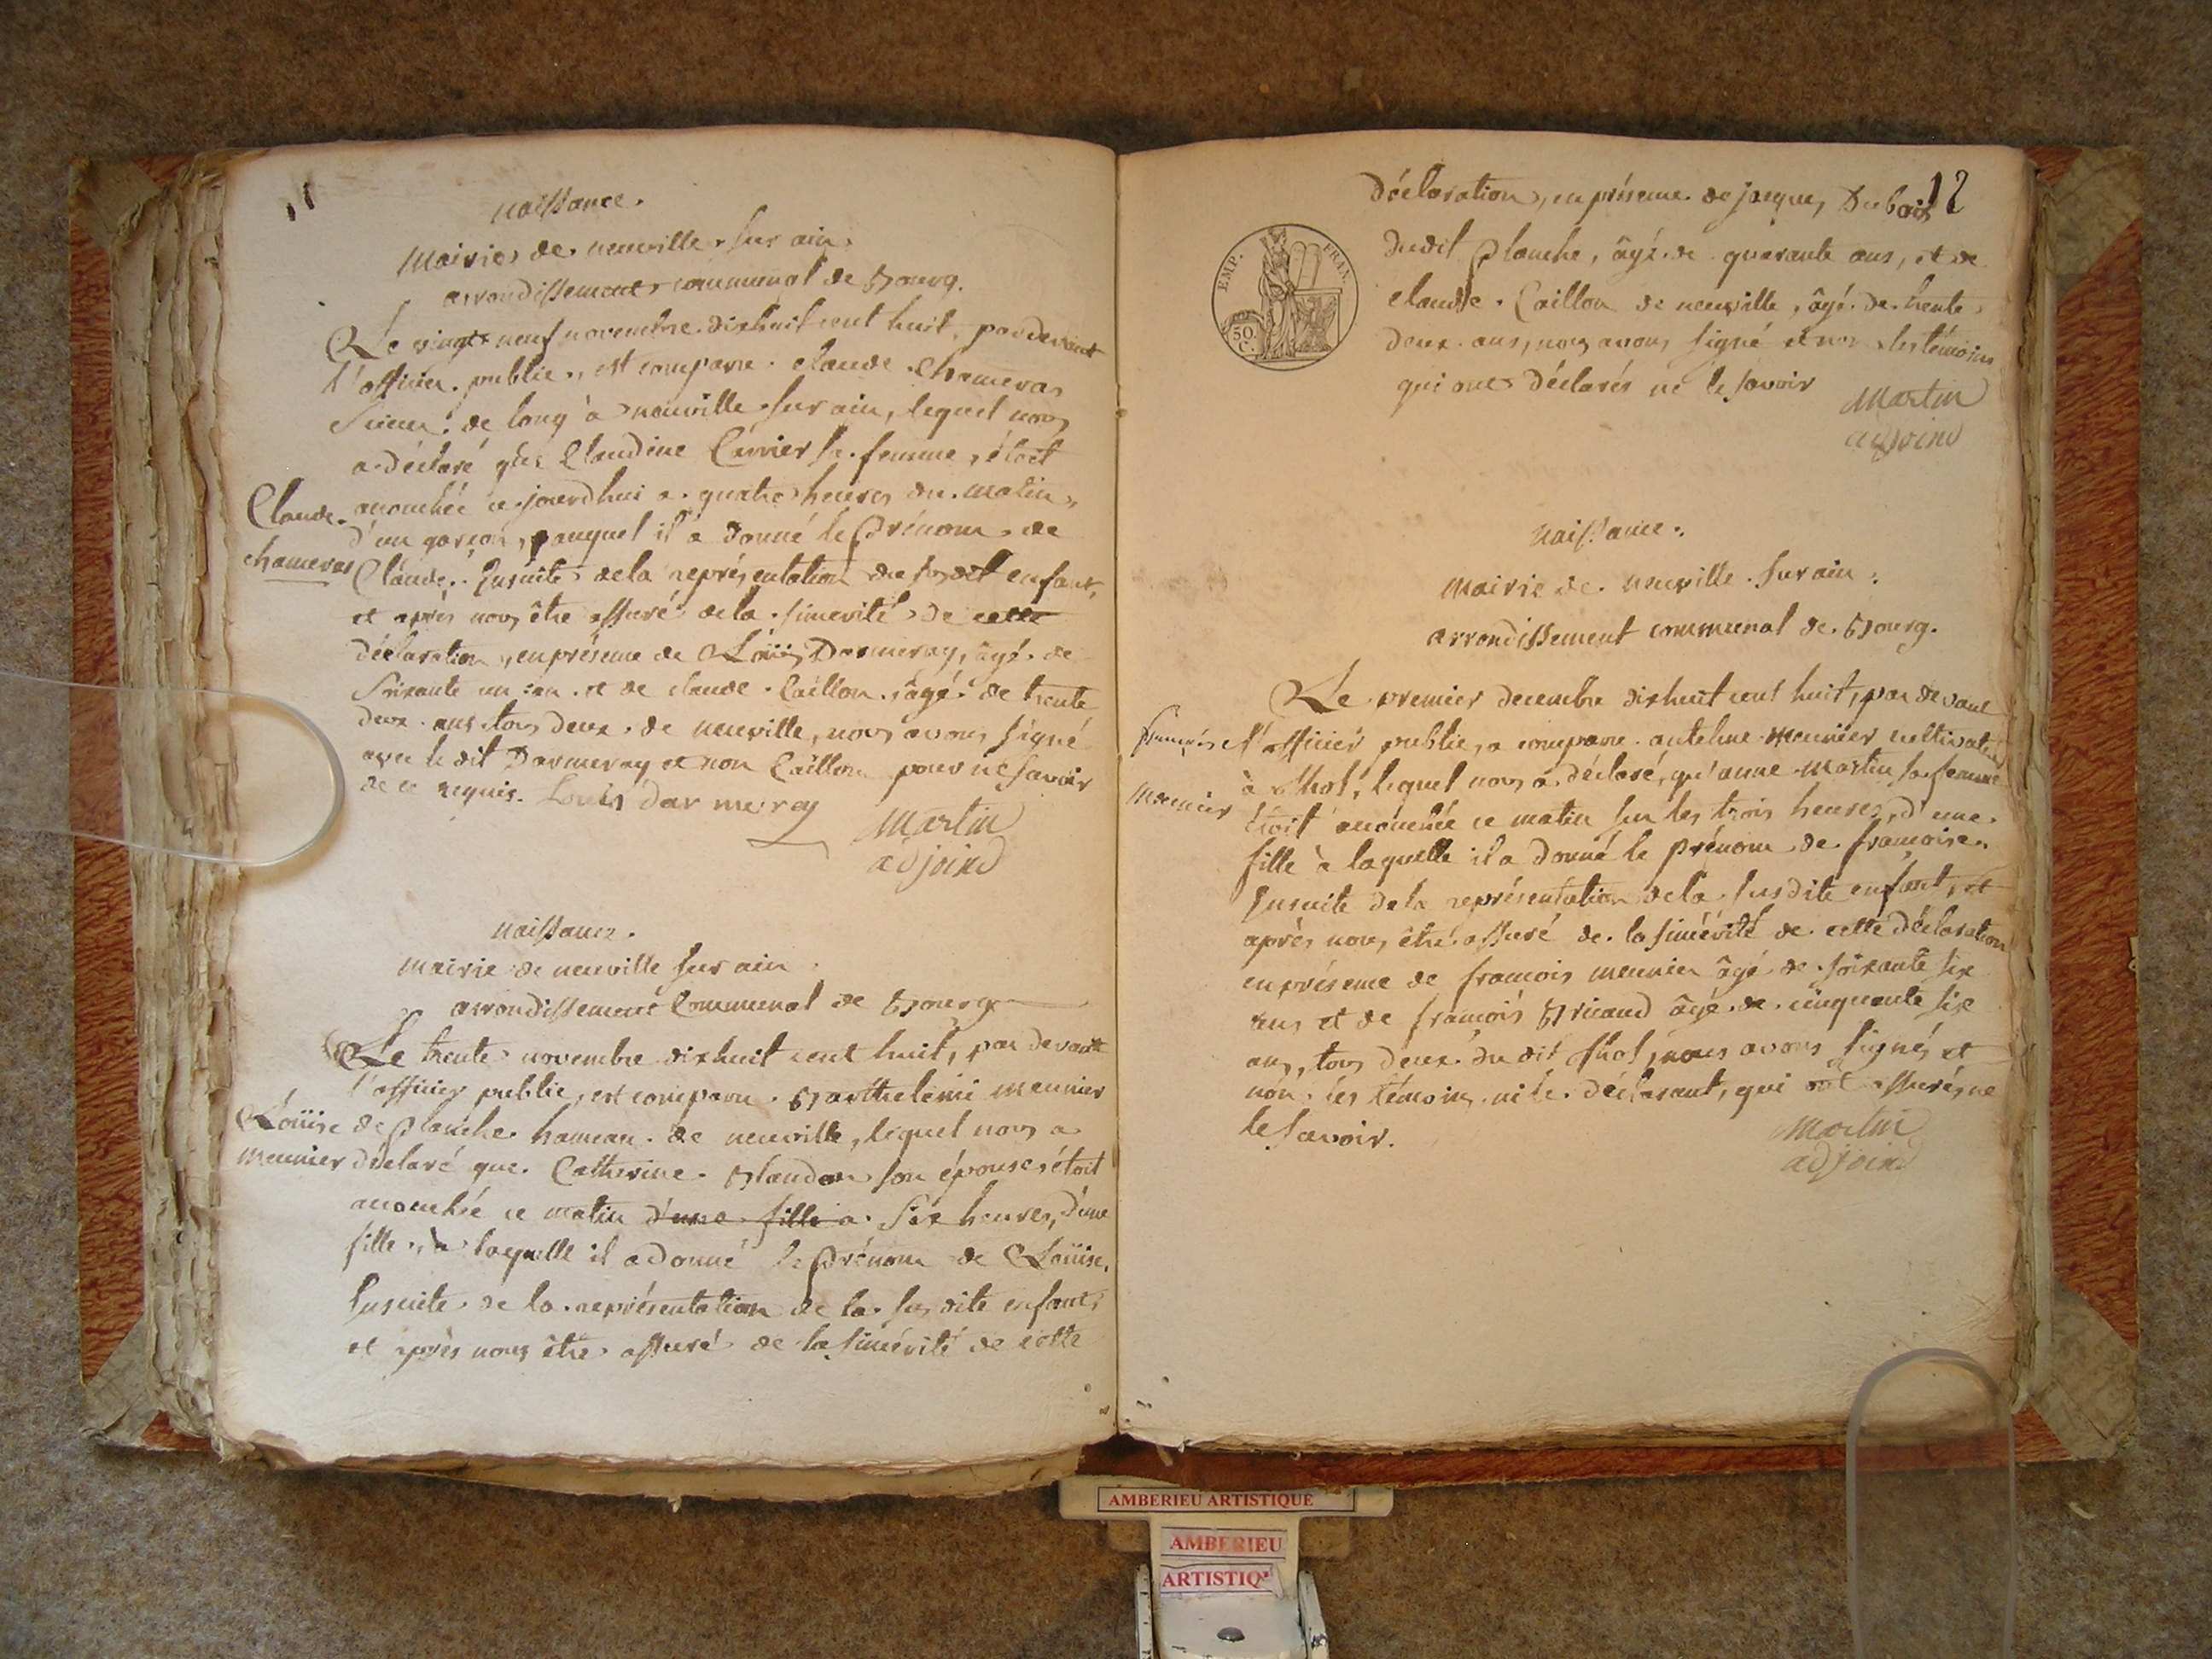 11
naissance.
Mairie de neuville sur ain.
arrondissement communal de Bourg.
Le vingt neuf novembre dixhuit cent huit, par devant
l'officier public, est comparu Claude Chameras
Scieur de long à neuville sur ain, lequel nous
a déclaré que Claudine Cuvier sa femme, étoit
accouchée ce jourdhui a quatre heures du matin,
d'un garçon, auquel il a donné le Prénom de
Claude. Ensuite de la représentation du susdit enfant,
et après nous être assuré de la sincerité de cette
déclaration, en présence de Loüis Darmeray, âgé de
soixante un an et de claude Caillon, âgé de trente
deux ans tous deux de neuville, nous avons signé
avec le dit Darmeray et non Caillon pour ne savoir
de ce requis. Louis darmeray
Martin
adjoind
Claude
chameras
naissance.
mairie de neuville sur ain.
arrondissement Communal de Bourg
Le trente novembre dixhuit cent huit, par devant
l'officier public, est comparu Barthelemi meunier
de Planche hameau de neuville, lequel nous a
déclaré que Catherine Blandon son épouse, étoit
accouchée ce matin d'une fille a six heures, d'une
fille, à laquelle il a donné le Prénom de Loüise.
Ensuite de la représentation de la susdite enfant,
et après nous être assuré de la sincérité de cette
Loüise
meunier
12
déclaration, en présence de jacques Dubois
dudit Planche, âgé de quarante ans, et de
claude Caillon de neuville, âgé de trente
deux ans, nous avons signé et non les témoins
qui ont déclarés ne le savoir
Martin
adjoind
EMP. FRAN.
50 C.
naissance.
Mairie de neuville sur ain.
arrondissement communal de Bourg.
Le premier decembre dixhuit cent huit, par devant
l'officier public, a comparu antelme meunier cultivateur
à Thol, lequel nous a déclaré, qu'anne Martin sa femme
étoit accouchée ce matin sur les trois heures, d'une
fille à laquelle il a donné le prénom de francoise.
Ensuite de la représentation de la susdite enfant, et
après nous être assuré de la sincérité de cette déclaration
en présence de francois meunier âgé de soixante six
ans et de francois Bricaud âgé de cinquante six
ans, tous deux du dit Thol, nous avons signés et
non les témoins ni le déclarant, qui ont assurés ne
le savoir.
Martin
adjoind
meunier
AMBERIEU ARTISTIQUE
AMBERIEU
ARTISTIQ